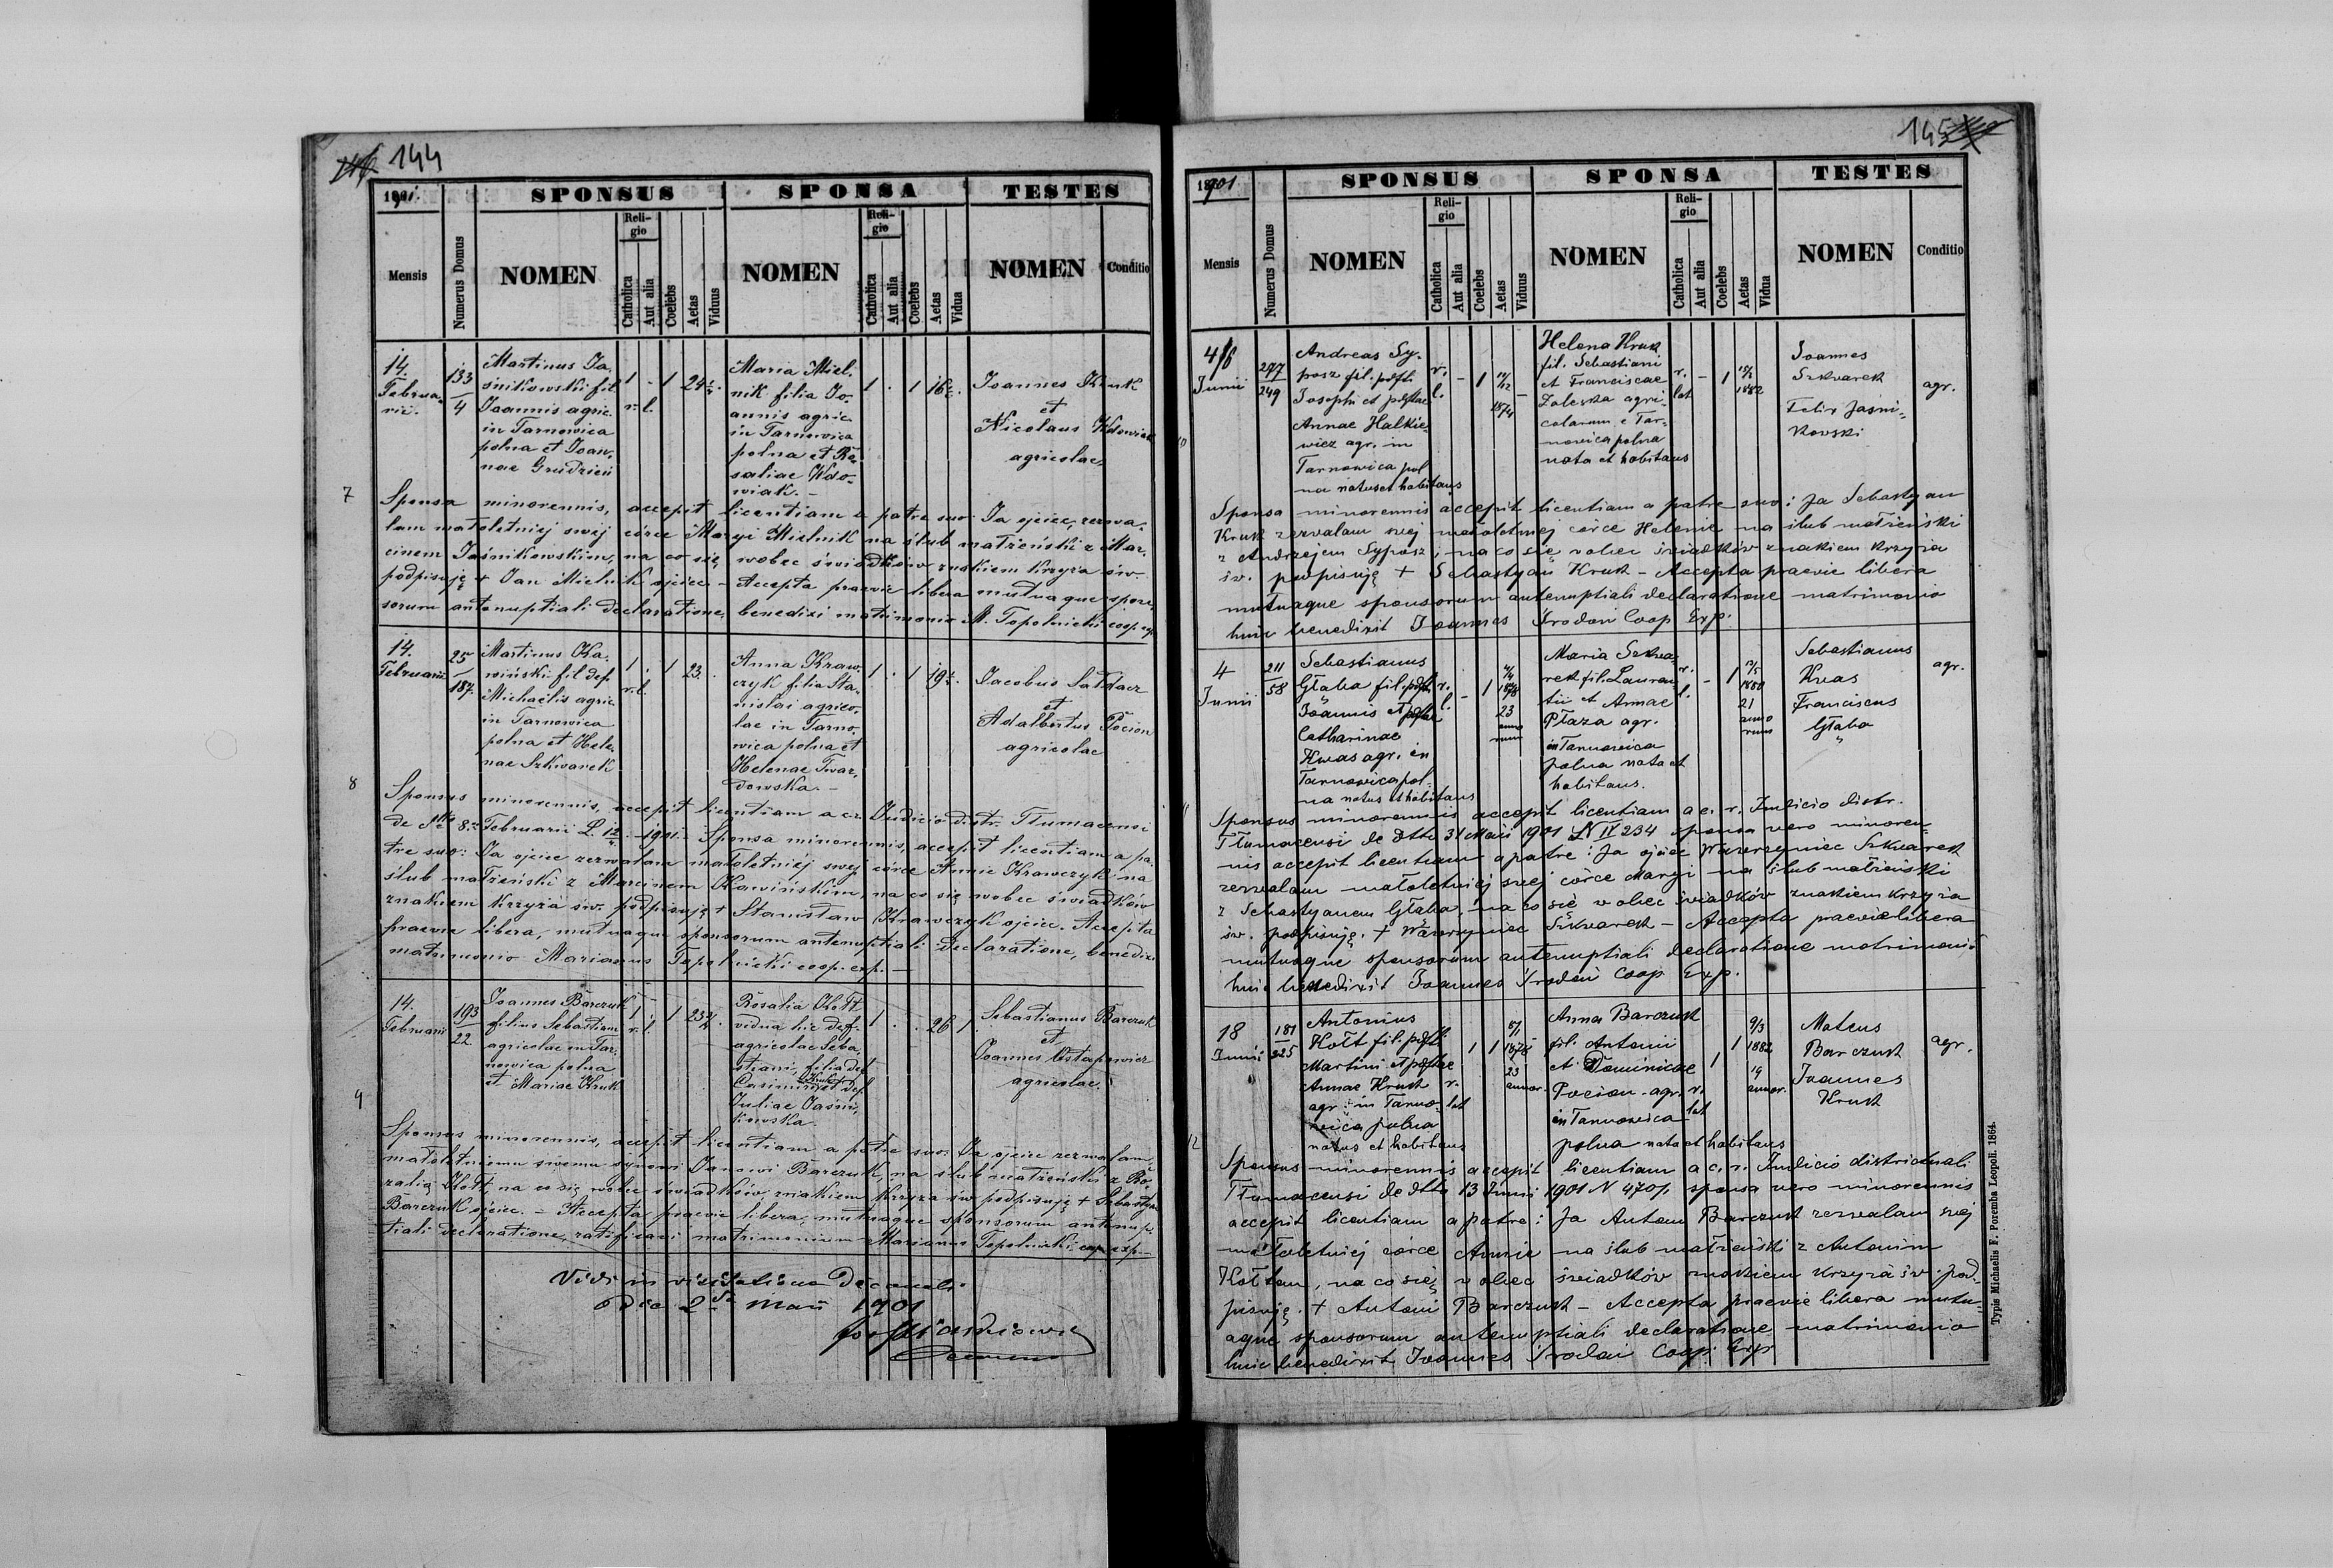 144
1901.
SPONSUS SPONSA TESTES
Mensis
Numerus Domus
NOMEN
Religio
Catholica
Aut alia
Coelebs
Aetas
Viduus
NOMEN
Religio
Catholica
Aut alia
Coelebs
Aetas
Vidua
NOMEN
Conditio
7
14.
Februarii.
133
4
Martinus Ja-
śnikowski fil
Joannis agric.
in Tarnowica
polna et Joan-
nae Grudzień
1 . 1 24
r. l.
Maria Miel-
nik filia Jo-
annis agric.
in Tarnowica
polna et Ro-
saliae Wdo-
wiak. –
1 . 1 16
Joannes Kruk
et
Nicolaus Wdowiak
agricolae
Sponsa minorennis, accepit licentiam a patre suo: Ja ojciec, zezwa-
lam małoletniej swej córce Maryi Mielnik na ślub małżeński z Mar-
cinem Jaśnikowskim, na co się wobec świadków znakiem krzyża św.
podpisuję + Jan Mielnik ojciec – Accepta praevie libera mutuaque spon-
sorum antenuptiali declaratione, benedixi matrimonio M. Topolnicki coop. exp.
8
14.
Februarii
25
187.
Martinus Ka-
wiński fil def.
Michaelis agric.
in Tarnowica
polna et Hele-
nae Szkwarek
1 . 1 23.
r. l.
Anna Kraw-
czyk filia Sta-
nislai agrico-
lae in Tarno-
wica polna et
Helenae Twar-
dowska. –
1 . 1 19
Jacobus Sałdacz
et
Adalbertus Pocion
agricolae
Sponsus minorennis, accepit licentiam a c.r. Judicio distr. Tłumacensi
de dtto 8. Februarii L. 1901. – Sponsa minorennis, accepit licentiam a pa-
tre suo: Ja ojciec zezwalam małoletniej swej córce Annie Krawczyk na
ślub małżeński z Marcinem Kawińskim, na co się wobec świadków
znakiem krzyża św. podpisuję + Stanisław Krawczyk ojciec. Accepta
praevie libera, mutuaque sponsorum antenuptiali declaratione, benedixi
matrimonio Marianus Topolnicki coop. exp. –
9
14.
Februarii
193
22.
Joannes Barczuk
filius Sebastiani
agricolae in Tar-
nowica polna
et Mariae Kruk
1 . 1 23
r. l.
Rosalia Kołt
vidua hic def.
agricolae Seba-
stiani, filia def
Casimiri et def.
Juliae Jaśni-
kowska.
1 . . 26 1
Sebastianus Barczuk
et
Joannes Ostapowicz
agricolae.
Sponsus minorennis, accepit licentiam a patre suo. Ja ojciec zezwalam
małoletniemu swemu synowi Janowi Barczuk, na ślub małżeński z Ro-
zalią Kołt, na co się wobec świadków znakiem krzyża św podpisuję + Sebastyan
Barczuk ojciec. – Accepta praevie libera, mutuaque sponsorum antenup-
tiali declaratione, ratificavi matrimonium Marianus Topolnicki coop. exp. –
Vidi in visitatione Decanali
die 2 Maii 1901
145
1901
SPONSUS SPONSA TESTES
Mensis
Numerus Domus
NOMEN
Religio
Catholica
Aut alia
Coelebs
Aetas
Viduus
NOMEN
Religio
Catholica
Aut alia
Coelebs
Aetas
Vidua
NOMEN
Conditio
10
4/6
Junii
277
249
Andreas Sy-
posz fil. pdft.
Josephi et pdftae
Annae Halkie-
wicz agr. in
Tarnowica pol
na natus et habitans
r.
l.
– 1
1874
–
Helena Kruk
fil. Sebastiani
et Franciscae
Zaleska agri-
colarum e Tar-
nowica polna
nata et habitans
r.
lat
– 1
15/2
1882
Joannes
Szkvarek
Felix Jaśni-
kowski
agr.
Sponsa minorennis accepit licentiam a patre suo: Ja Sebastyan
Kruk zezwalam swej małoletniej córce Helenie na ślub małżeński
z Andrzejem Syposz i na co się wobec świadków znakiem krzyża
św. podpisuję + Sebastyan Kruk – Accepta praevie libera
mutuaque sponsorum antenuptiali declaratione matrimonio
huic benedixit Joannes Środoń Coop Exp.
11
4
Junii
211
58
Sebastianus
Głąba fil. pdft.
Joannis et pdftae
Catharinae
Kwas agr. in
Tarnowica pol-
na natus et habitans
r.
l.
– 1
1878
23
anno
rum
Maria Szkwa-
rek fil. Lauren-
tii et Annae
Płaza agr.
in Tarnowica
polna nata et
habitans.
r.
l.
– 1
1880
21
anno
rum
Sebastianus
Kwas
Franciscus
Głąba
agr.
Sponsus minorennis accepit licentiam a c. r. Judicio distr.
Tłumacensi de dtto 31 Maii 1901 L N IV 234 sponsa vero minoren-
nis accepit licentiam a patre: Ja ojciec Wawrzyniec Szkwarek
zezwalam małoletniej swej córce Maryi na ślub małżeński
z Sebastyanem Głąba, na co się wobec świadków znakiem krzyża
św. podpisuję. + Wawrzyniec Szkwarek – Accepta praevie libera
mutuaque sponsorum antenuptiali declaratione matrimonio
huic benedixit Joannes Środoń Coop Exp.
12
18
Junii
181
225
Antonius
Kołt fil. pdft.
Martini et pdftae
Annae Kruk
agr. in Tarno-
wica polna
natus et habitans
r.
lat
1 1
1878
23
annor.
Anna Barczuk
fil. Antoni
et Dominicae
Pocion agr.
in Tarnowica
polna nata et habitans
r.
lat
1 1
9/3
1882
19
annor.
Mateus
Barczuk
Joannes
Kruk
agr.
Sponsus minorennis accepit licentiam a c. r. Judicio districtuali
Tłumacensi de dtto 13 Junii 1901 N 470/1 sponsa vero minorennis
accepit licentiam a patre: Ja Antoni Barczuk zezwalam swej
małoletniej córce Annie na ślub małżeński z Antonim
Kołtem, na co się wobec świadków znakiem krzyża św. pod-
pisuję. + Antoni Barczuk – Accepta praevie libera mutu-
aque sponsorum antenuptiali declaratione matrimonio
huic benedixit Joannes Środoń Coop Exp
Typis Michaelis F. Poremba Leopoli. 1864.